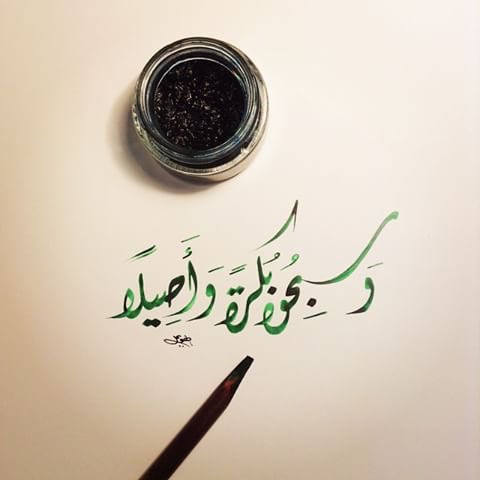 وَسِبِّحُوهُ بُكْرَةً وَأَصِيلًا